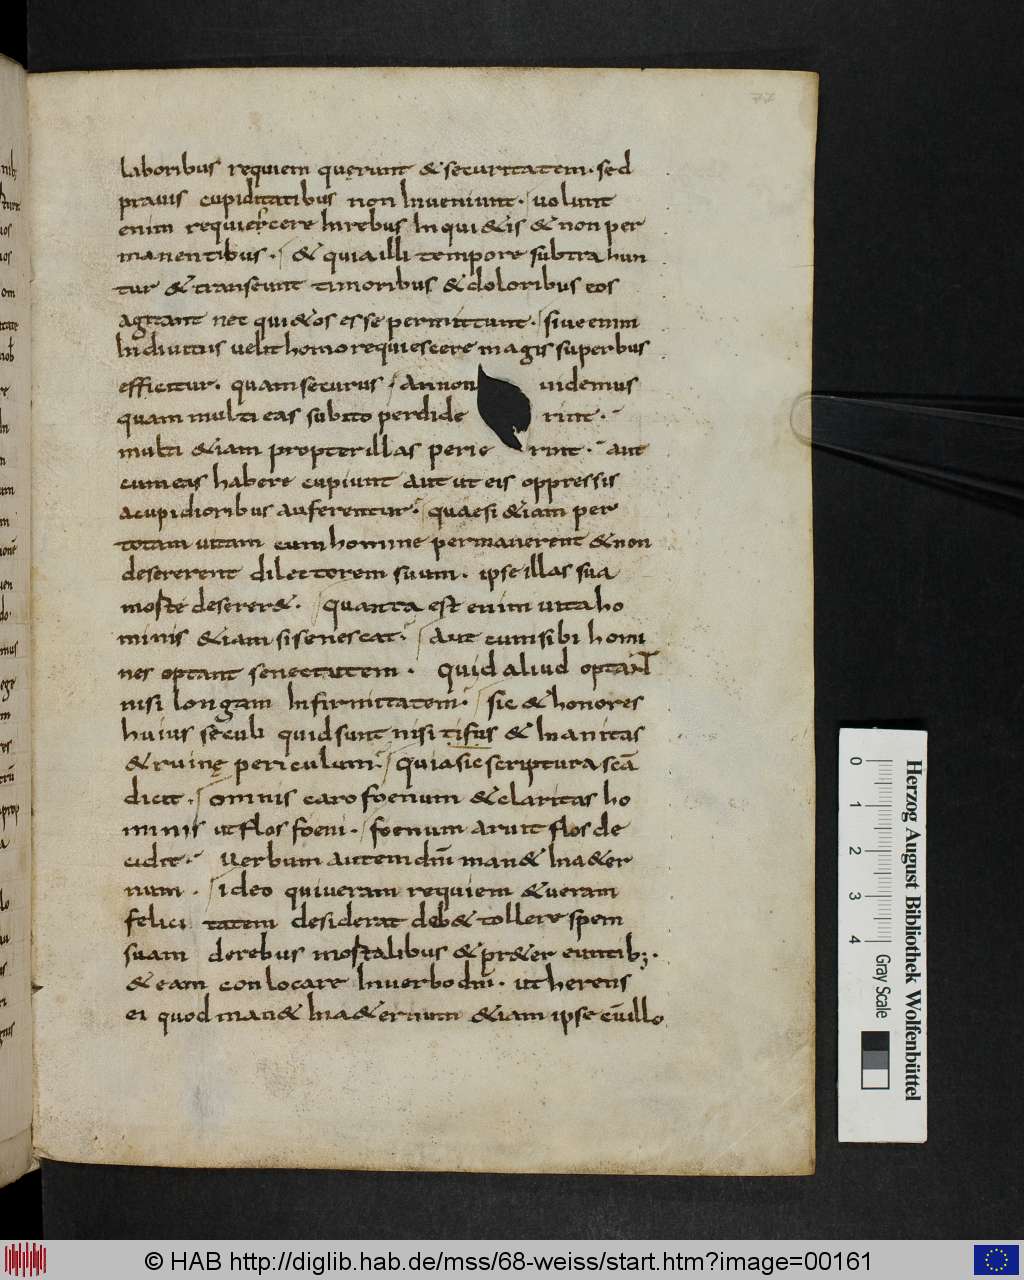 77
laboribus requiem quęrunt & securitatem. sed
prauis cupiditatibus non inueniunt. uolunt
enim requiescere inrebus inqui&is & non per
manentibus. & quia illi tempore subtrahun
tur & transeunt timoribus & doloribus eos
agitant nec qui&os esse permittunt. siue enim
indiuitiis uelit homo requiescere magis superbus
efficitur. quam securus. annon uidemus
quam multi eas subito perdide rint.
multi &iam propter illas perie rint. aut
cum eas habere cupiunt aut ut eis oppressis
acupidioribus auferentur. quaesi &iam per
totam uitam cum homine permanerent & non
desererent dilectorem suum. ipse illas sua
morte deserer&. quanta est enim uita ho
minis &iam si senescat. aut cum sibi homi
nes optant senectutem. quid aliud optant
nisi longam infirmitatem. sic & honores
huius sęculi quid sunt nisi tifus & inanitas
& ruinę periculum. quia sic scriptura scā
dicit. omnis caro foenum & claritas ho
minis ut flos foeni. foenum aruit flos de
cidit. uerbum autem dn̄i man& in&er
num. ideo qui ueram requiem & ueram
felici tatem desiderat deb& tollere spem
suam derebus mortalibus & pr&er euntib;.
& eam conlocare inuerbo dn̄i. ut herens
ei quod man& in&ernum &iam ipse cū illo
Herzog August Bibliothek Wolfenbüttel
0 1 2 3 4 Gray Scale
© HAB http://diglib.hab.de/mss/68-weiss/start.htm?image=00161